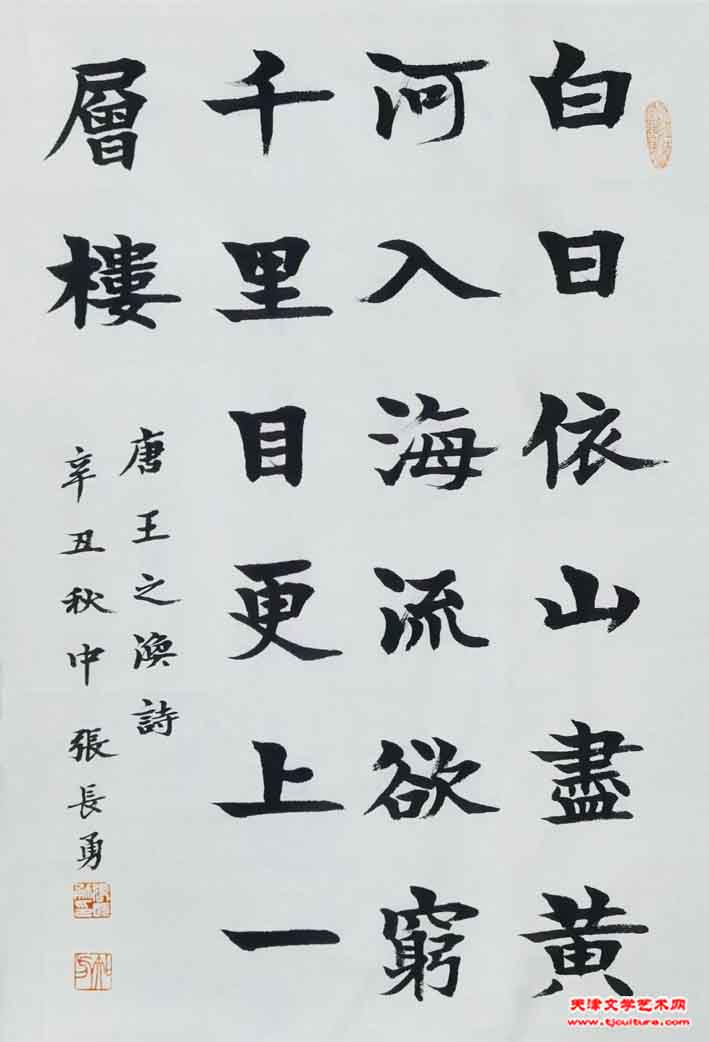 白日依山盡黃
河入海流欲窮
千里目更上一
層樓
唐王之渙詩
辛丑秋中 張長勇
天津文学艺术网
www.tjculture.com